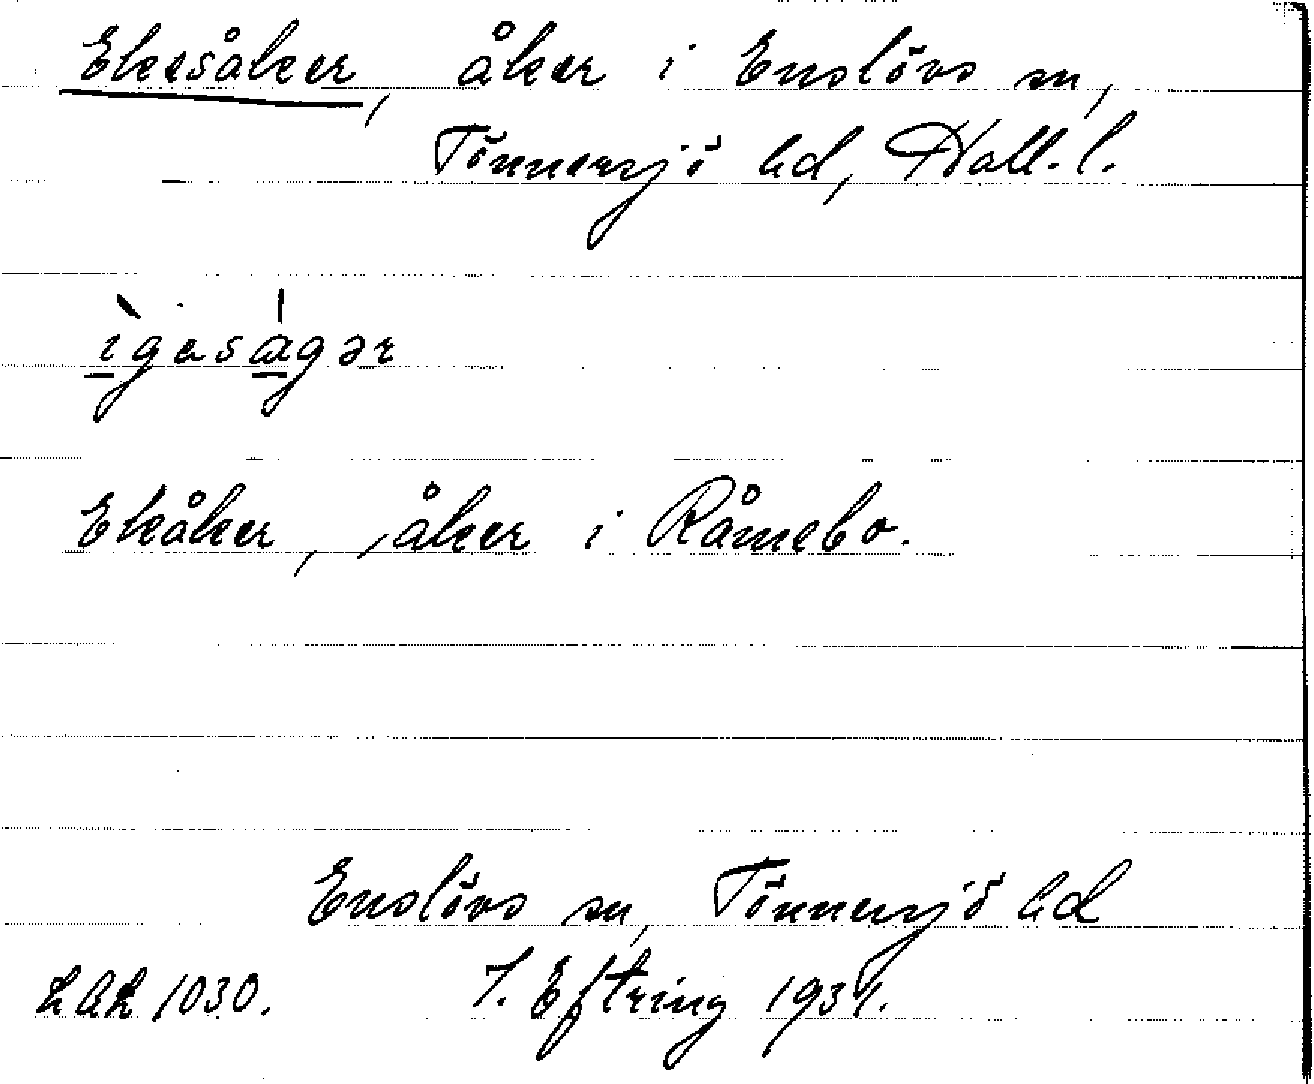 Ekesåker, åker i Enslövs sn,
Tönnersjö hd, Hall. l.
ìgəságər
Ekåker, åker i Råmebo.
Enslövs sn, Tönnersjö hd
LAL 1030. J. Eftring 1934.